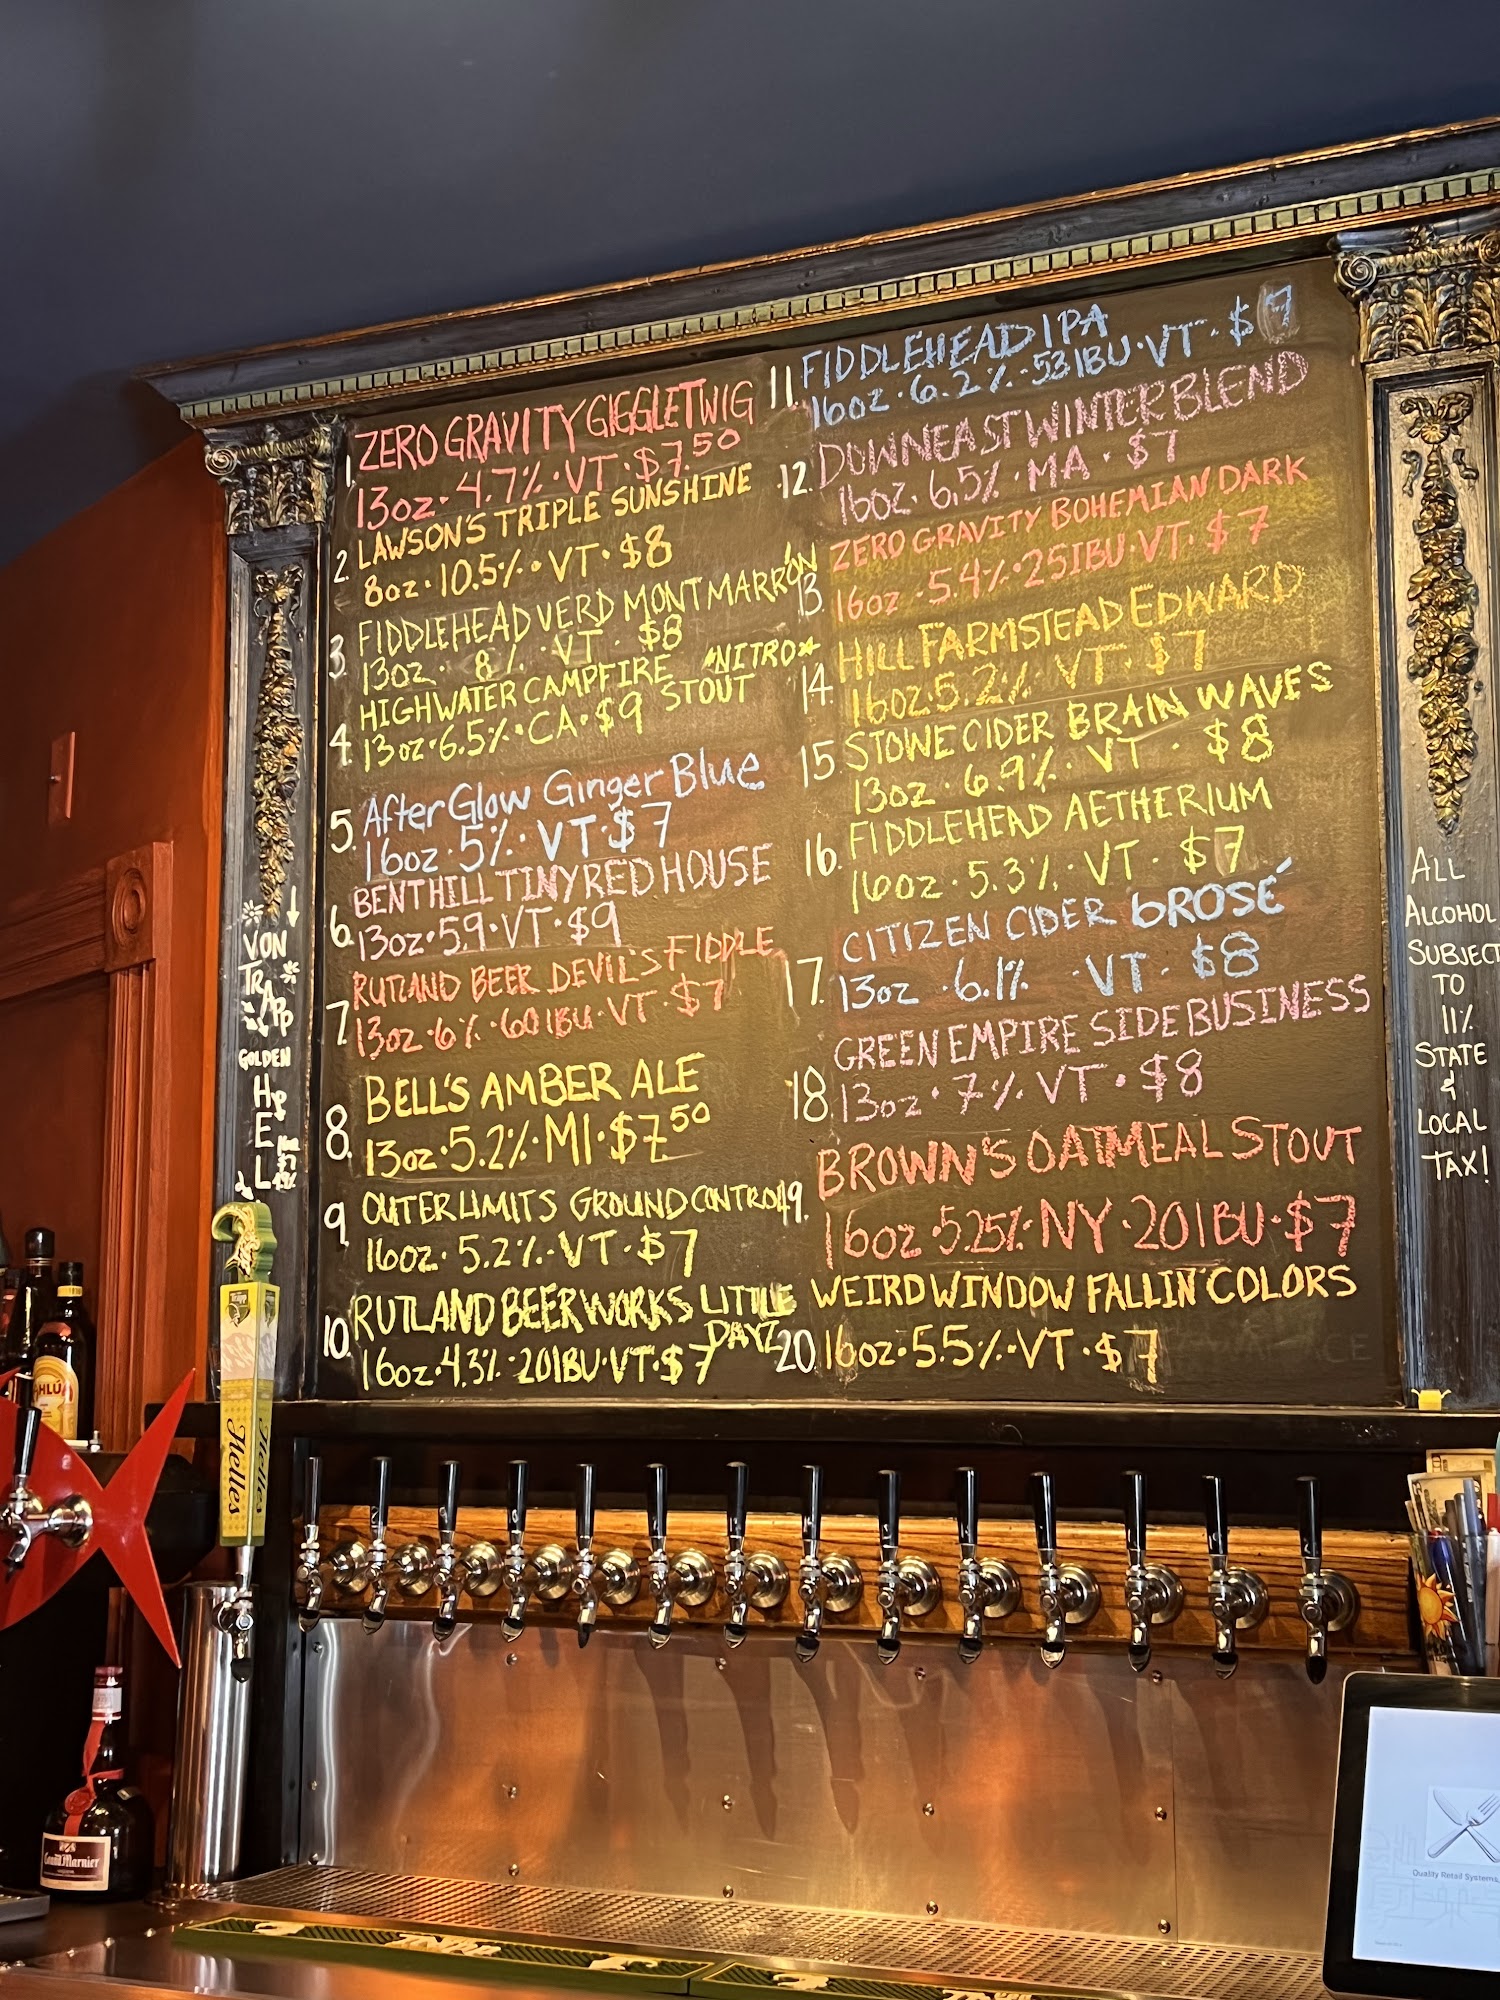 1. ZERO GRAVITY GIGGLETWIG
13oz · 4.7% · VT · $7.50
2. LAWSON'S TRIPLE SUNSHINE
8oz · 10.5% · VT · $8
3. FIDDLEHEAD VERD MONT MARRÓN
13oz · 8% · VT · $8
4. HIGHWATER CAMPFIRE STOUT *NITRO*
13oz · 6.5% · CA · $9
5. After Glow Ginger Blue
16oz · 5% · VT · $7
6. BENT HILL TINY RED HOUSE
13oz · 5.9 · VT · $9
7. RUTLAND BEER DEVIL'S FIDDLE
13oz · 6% · 60IBU · VT · $7
8. BELL'S AMBER ALE
13oz · 5.2% · MI · $7.50
9. OUTER LIMITS GROUND CONTROL
16oz · 5.2% · VT · $7
10. RUTLAND BEER WORKS LITTLE DAYZ
16oz · 4.3% · 20IBU · VT · $7
11. FIDDLEHEAD IPA
16oz · 6.2% · 53IBU · VT · $7
12. DOWNEAST WINTER BLEND
16oz · 6.5% · MA · $7
13. ZERO GRAVITY BOHEMIAN DARK
16oz · 5.4% · 25IBU · VT · $7
14. HILL FARMSTEAD EDWARD
16oz · 5.2% VT · $7
15. STOWE CIDER BRAIN WAVES
13oz · 6.9% · VT · $8
16. FIDDLEHEAD AETHERIUM
16oz · 5.3% · VT · $7
17. CITIZEN CIDER bROSÉ
13oz · 6.1% · VT · $8
18. GREEN EMPIRE SIDE BUSINESS
13oz · 7% VT · $8
19. BROWN'S OATMEAL STOUT
16oz · 5.25% · NY · 20IBU · $7
20. WEIRD WINDOW FALLIN' COLORS
16oz · 5.5% · VT · $7
VON
TRAPP
GOLDEN
HEL
ALL
ALCOHOL
SUBJECT
TO
11%
STATE
&
LOCAL
TAX!
Trapp
Helles
Helles
AHLÚA
Grand Marnier
Quality Retail Systems